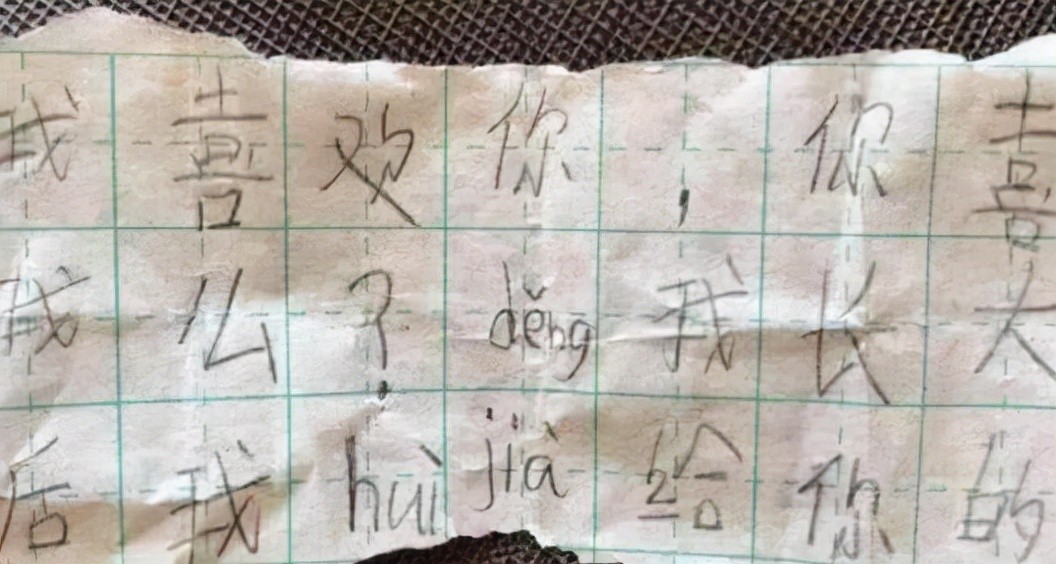 我喜欢你,你喜
我么?děng我长大
后我huìjià给你的